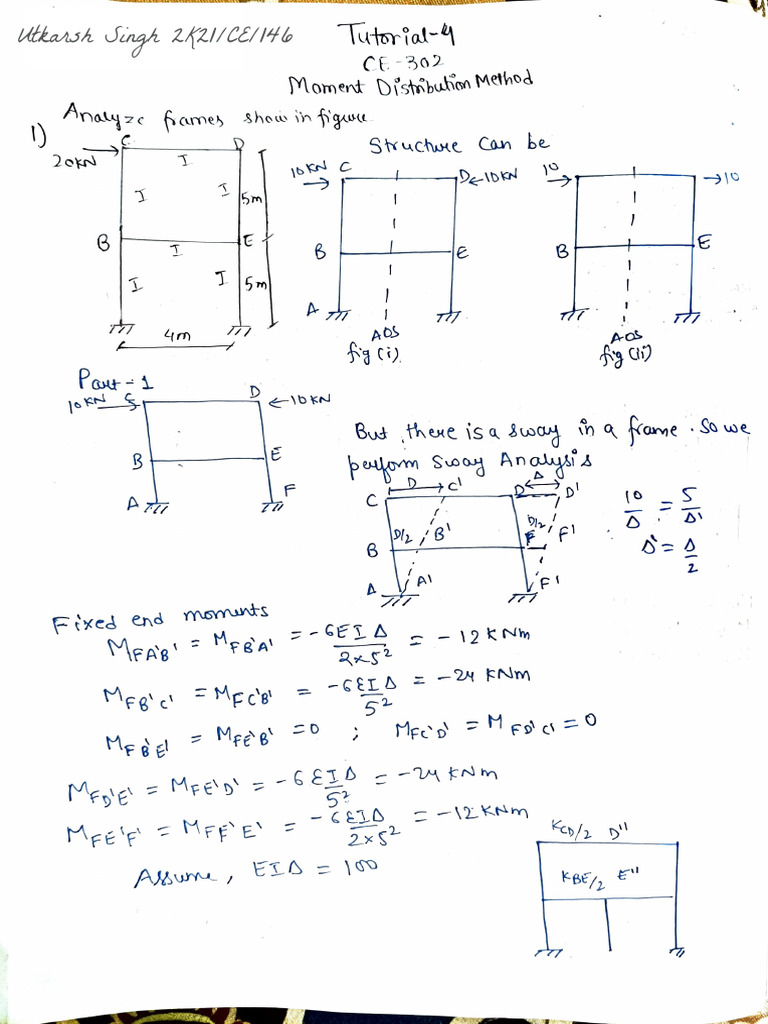 Utkarsh Singh 2K21/CE/146
Tutorial-4
CE-302
Moment Distribution Method
1) Analyze frames show in figure.
Structure can be
20KN C I D
I I 5m
B I E
I I 5m
4m
10KN C D ←10KN
B E
A
AOS
fig (i)
10 →10
B E
AOS
fig (ii)
Part-1
10KN C D ←10KN
B E
A F
But, there is a sway in a frame. So we
perform Sway Analysis
C D C' D Δ D'
D/2 B' D/2 F'
B
A A' F'
10/Δ = 5/Δ'
Δ' = Δ/2
Fixed end moments
MFA'B' = MFB'A' = -6EIΔ/2×5² = -12 KNm
MFB'C' = MFC'B' = -6EIΔ/5² = -24 KNm
MFB'E' = MFE'B' = 0 ; MFC'D' = MFD'C' = 0
MFD'E' = MFE'D' = -6EIΔ/5² = -24 KNm
MFE'F' = MFF'E' = -6EIΔ/2×5² = -12 KNm
Assume, EIΔ = 100
KCD/2 D''
KBE/2 E''